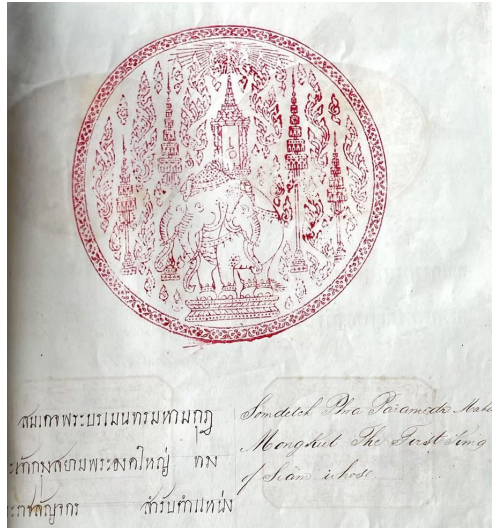 สมเดจพระบรเมนทรมหามกุฏ
กรุงสยามพระองคใหญ่ ทรง
สำรับตำแหน่ง
Somdetch Phra Paramendr Maha
Mongkut The First King
of Siam whose